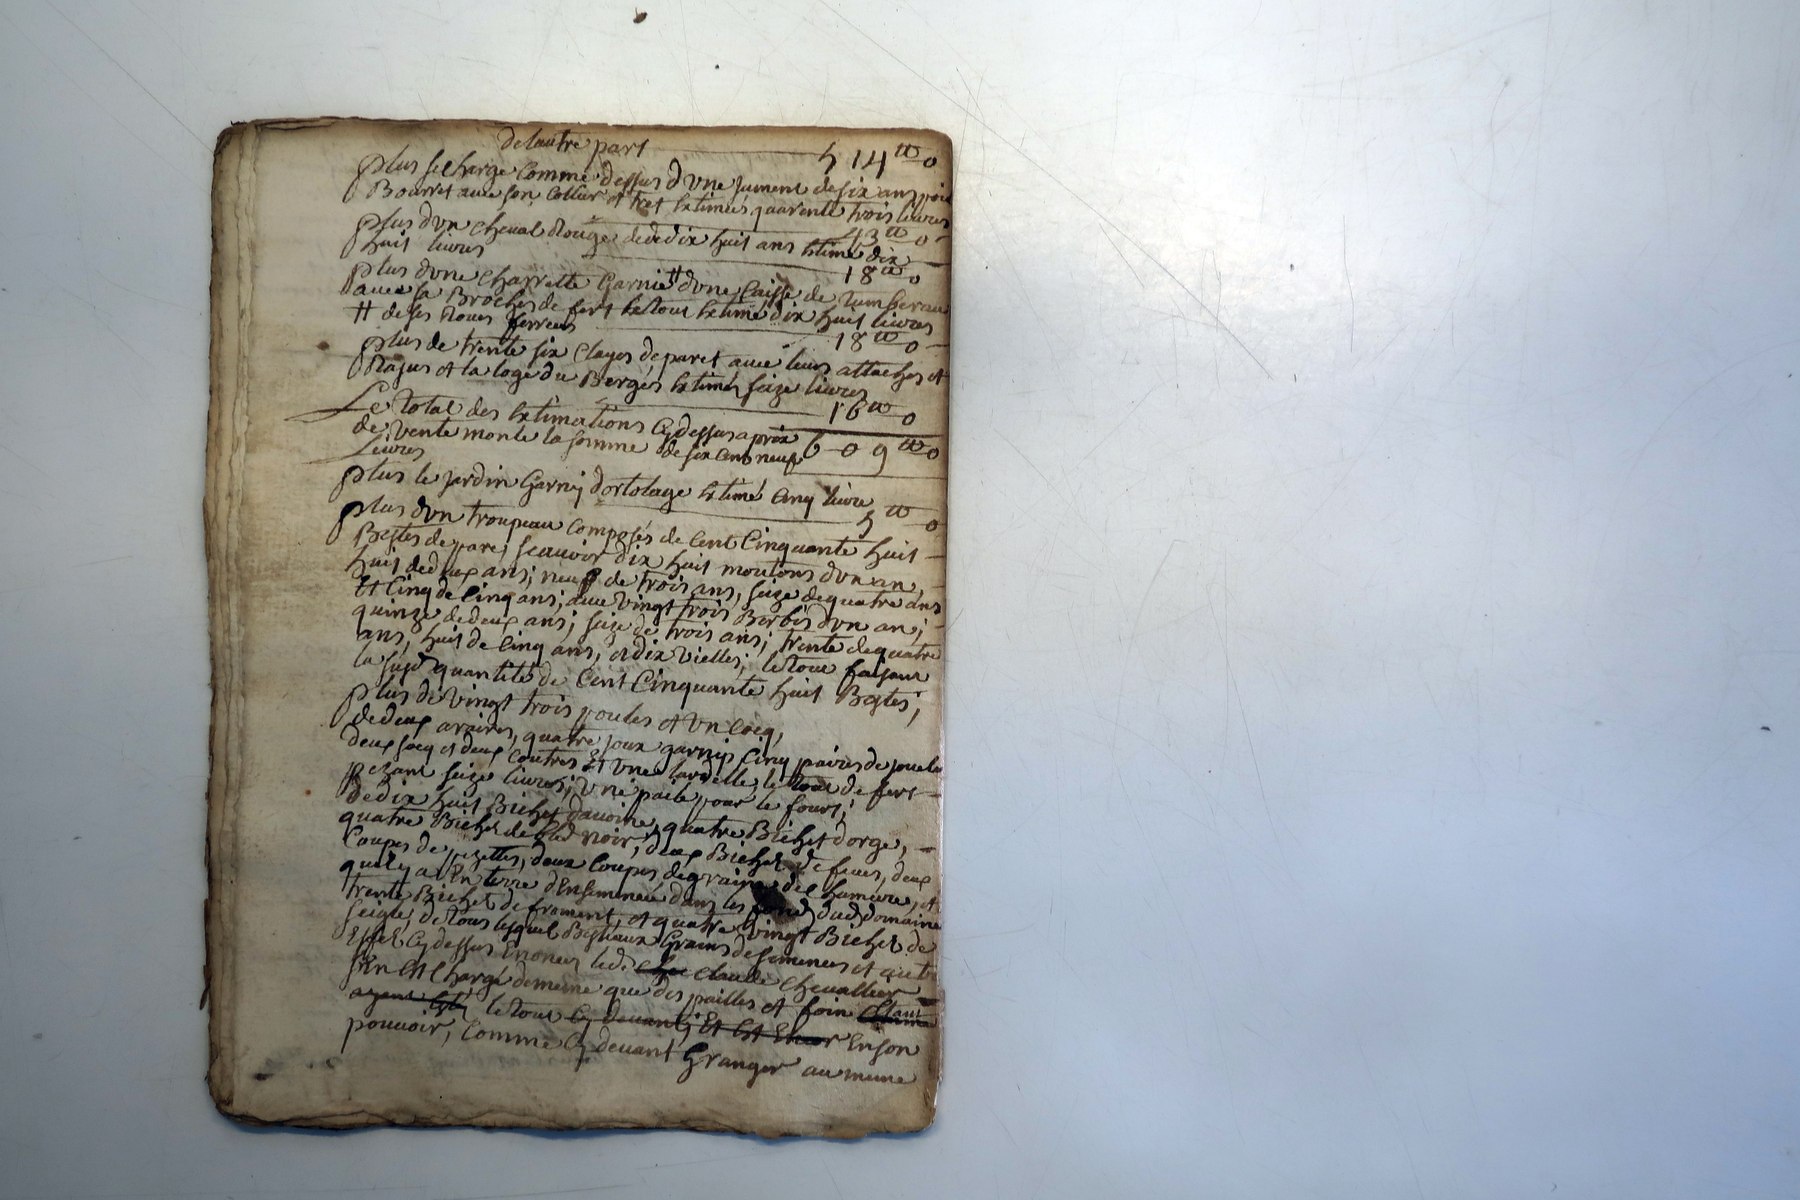 De lautre part 514tt 0
plus se charge Comme dessus dune Jument de six ans poil
Bourret avec son Collier et tret Extimée quarente trois livres
43tt 0
plus dun cheval Rouge de dedix huit ans Extimé dix
huit livres 18tt 0
plus dune charrette Garnie # dune Caisse de tumberau
avec sa Broches de fert le tout Extimé dix huit livres
# de ses Roues ferrees 18tt 0
plus de trente six Clayes de parct avec leurs attaches et
Rajus et la loge du Berger Extimés seize livres
16tt 0
Le total des Extimations Cy dessus a prix
de vente monte la somme de six cent neuf 609tt 0
Livres
plus le jardin Garny dortolage Extimé Cinq livre
5tt 0
plus dun troupeau Composés de Cent Cinquante huit
Bestes de parc, scauoir dix huit moutons dun an,
huit dedeux ans; neuf de trois ans, seize dequatre ans
Et Cinq de Cinq ans; avec vingt trois Berbis dun an;
quinze dedeux ans; seize de trois ans; trente dequatre
ans, huit de Cinq ans, et dix vielles; le tout faisant
la susd quantité de Cent Cinquante huit Bestes;
plus de vingt trois poules et un Cocq,
dedeux araires, quatre joux garnip Cinq paires de
deux socq et deux Coutres Et une le tout de fert
pezant seize livres; une paile pour le fourt;
de dix huit Bichet davoine, quatre Bichet dorge,
quatre Bichet de Bled noir, deux Bichet de feves, deux
Coupes de pezettes, deux Coupes degraine de,
quil y a En terre dEnsemencé dans les fond dud domaine
trente Bichet de froment, et quatre vingt Bichet de
seigle, de tous lesquel Bestiaux Grains de semences et autre
Effet Cy dessus Enoncés led. Claude Chevallier
sEn Est Chargé dememe que des pailles et foin
ayant le tout Cy devant Et Est Enson
pouvoir, Comme Cy devant Granger au meme